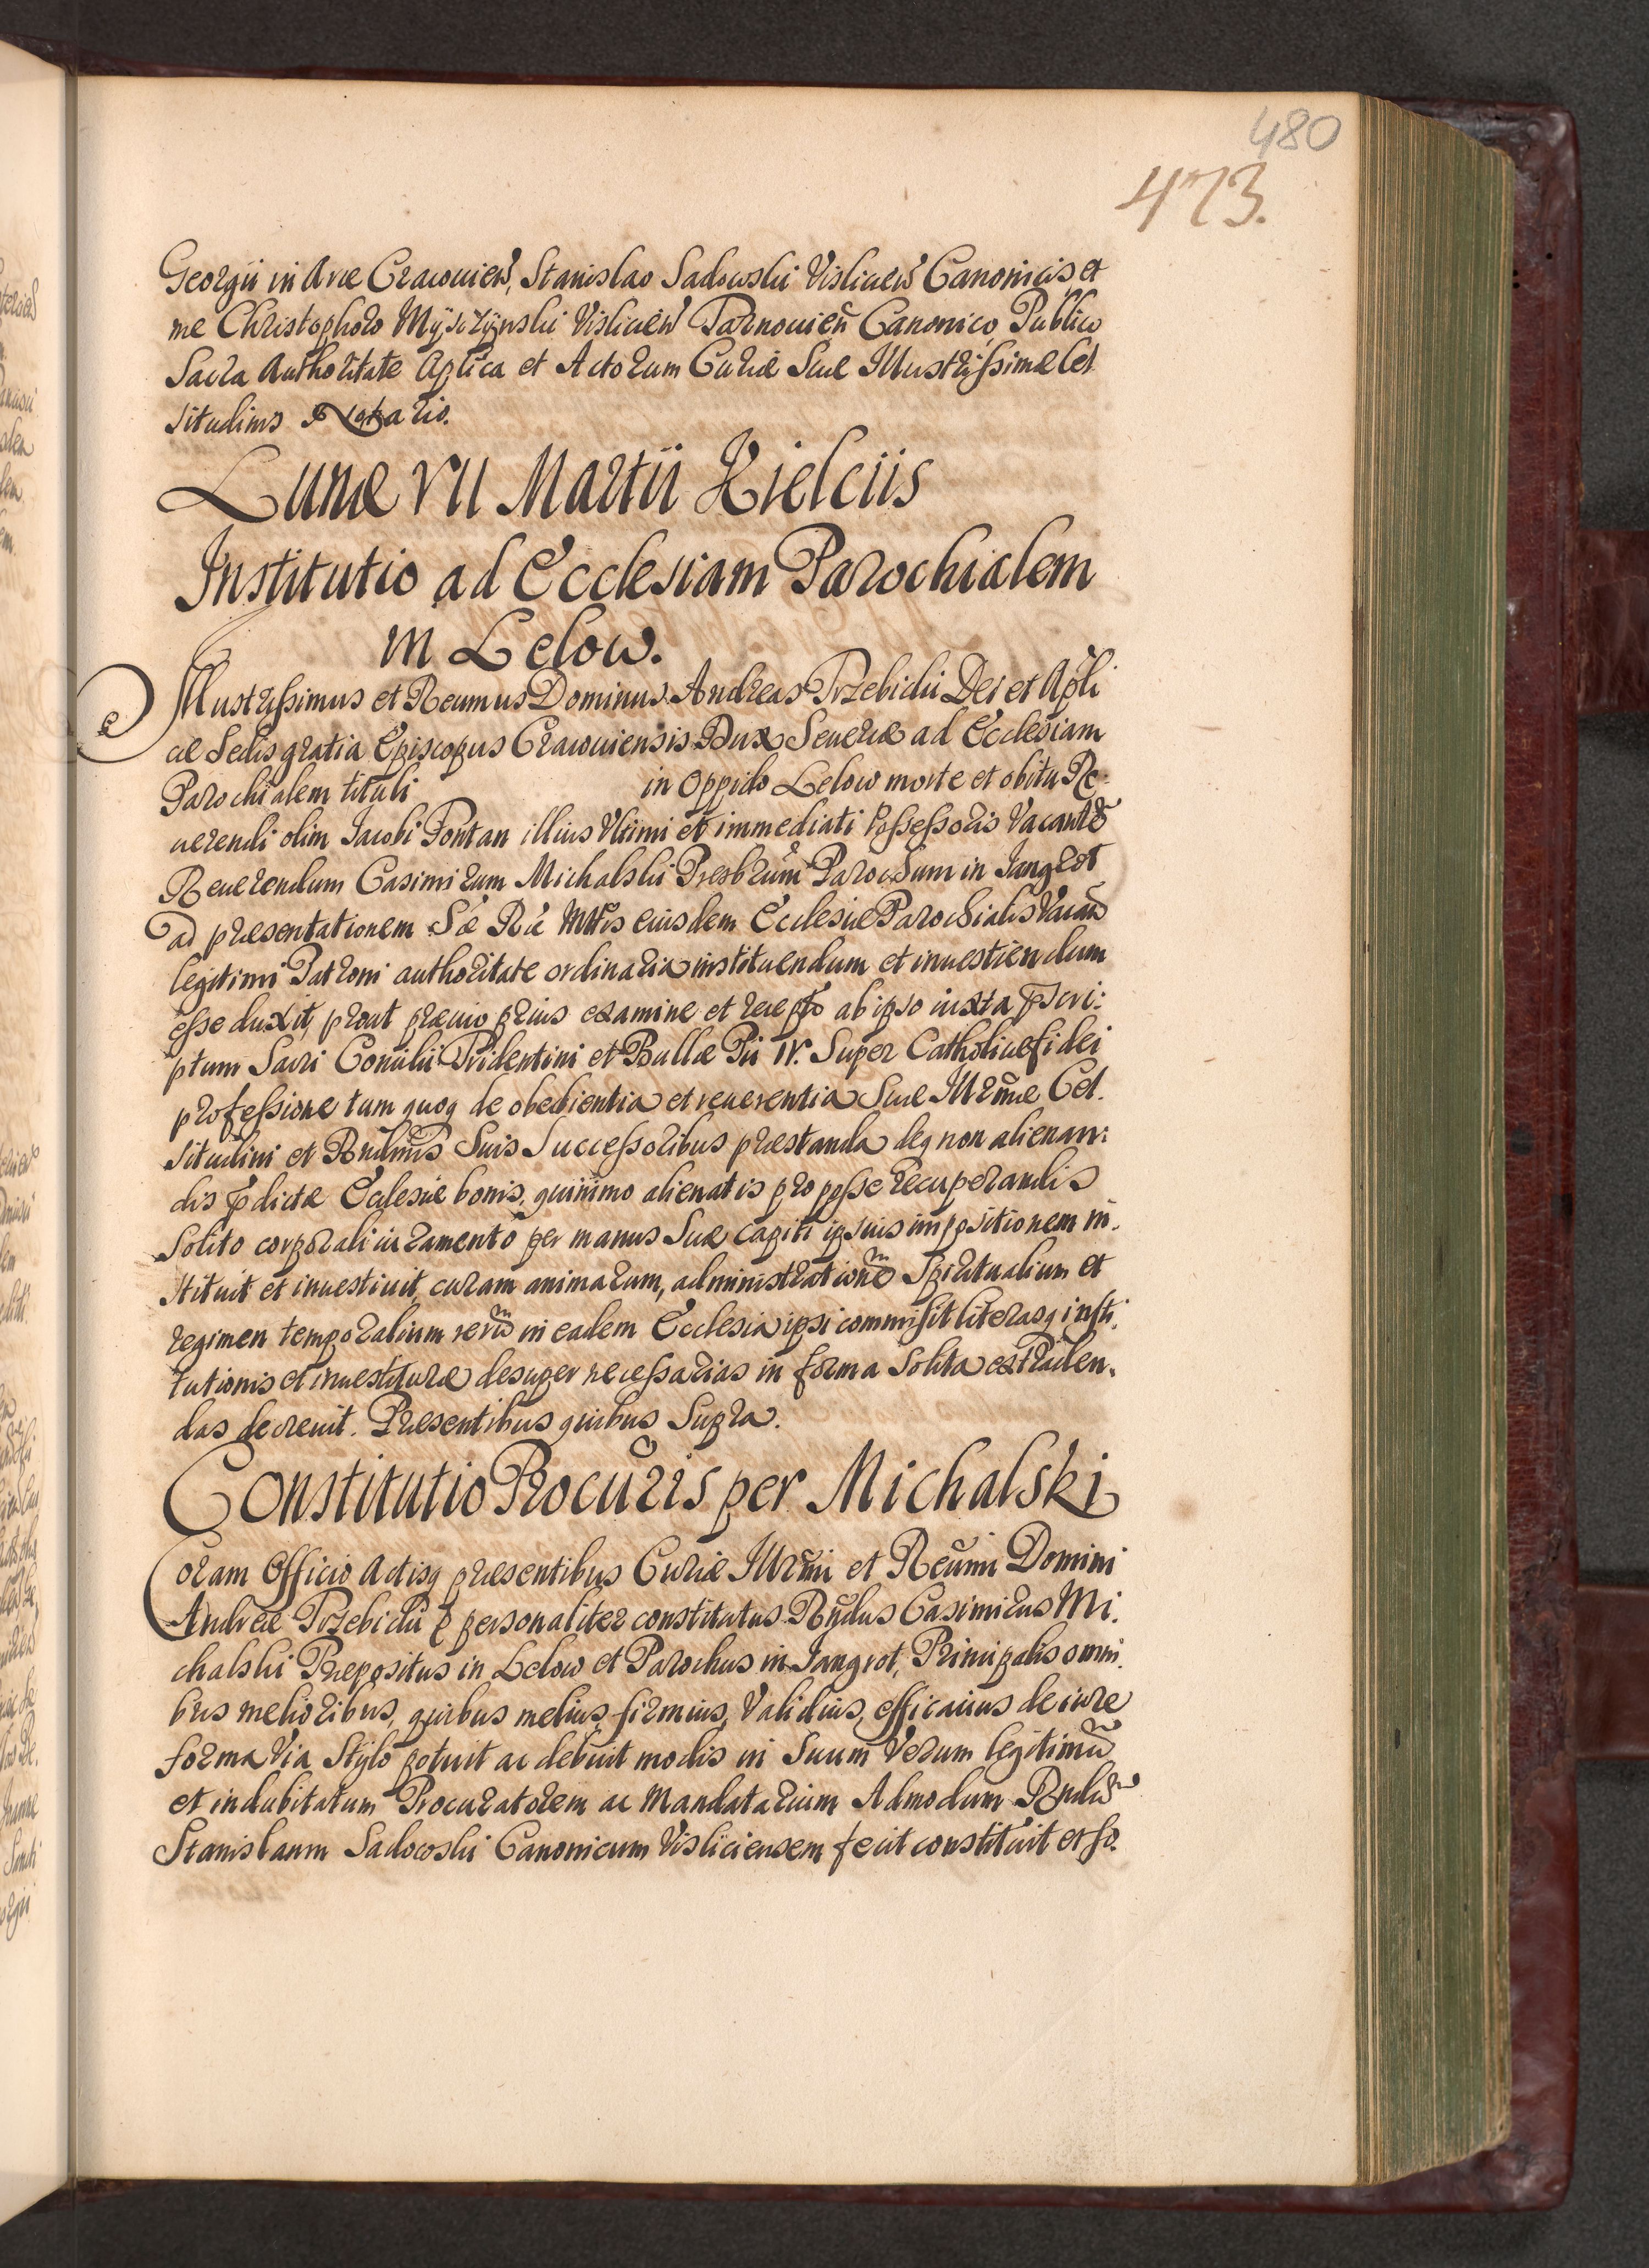 480
473.
Georgii in Arce Cracouien, Stanislao Sadowski Visliceń Canonicis, et
me Christophoro Mÿsczÿnski Visliceń Tarnouień Canonico, Publico
Sacra Authoritate Aplica et Actorum Curiæ Suæ Illustrissimæ Cel
situdinis Notario.
Lunæ VII Martii Kielciis
Institutio ad Ecclesiam Parochialem
in Lelow.
Illustrissimus et Reumus Dominus Andreas Trzebicki Dei et Apli
cæ Sedis gratia Episcopus Cracouiensis Dux Seueriæ ad Ecclesiam
Parochialem tituli in Oppido Lelow morte et obitu Re
uerendi olim Jacobi Fontan illius Vltimi et immediati Possessoris Vacantē
Reuerendum Casimirum Michalski Presbrum Parochum in Jangrot
ad præsentationem Sæ Ræ Mttis eiusdem Ecclesiæ Parochialis Vacań
legitimi Patroni authoritate ordinaria instituendum et inuestiendum
esse duxit, prout præuio prius examine et recepto ab ipso iuxta pscri:
ptum Sacri Concilii Tridentini et Bullæ Pii IV. Super Catholicæ fidei
professione tum quoq de obedientia et reuerentia Suæ Illrmæ Cel.
situdini et Rndmis Suis Successoribus præstanda deq non alienan:
dis pdictæ Ecclesiæ bonis, quinimo alienatis pro posse recuperandis
Solito corporali iuramento per manus Suæ capiti ipsius impositionem in.
stituit et inuestiuit, curam animarum, administrationē Spiritualium et
regimen temporalium rerū in eadem Ecclesia ipsi commisit literasq insti.
tutionis et inuestituræ desuper necessarias in forma Solita extraden.
das decreuit. Præsentibus quibus Supra.
Constitutio Procuris per Michalski
Coram Officio Actisq præsentibus Curiæ Illrmi et Reumi Domini
Andreæ Trzebicki E personaliter constitutus Rndus Casimirus Mi.
chalski Præpositus in Lelow et Parochus in Jangrot, Principalis omni.
bus melioribus, quibus melius, firmius, Validius, efficacius de iure
forma Via Stÿlo potuit ac debuit modis in Suum Verum legitimū
et indubitatum Procuratorem ac Mandatarium Admodum Rndū
Stanislaum Sadowski Canonicum Visliciensem fecit constituit et so.